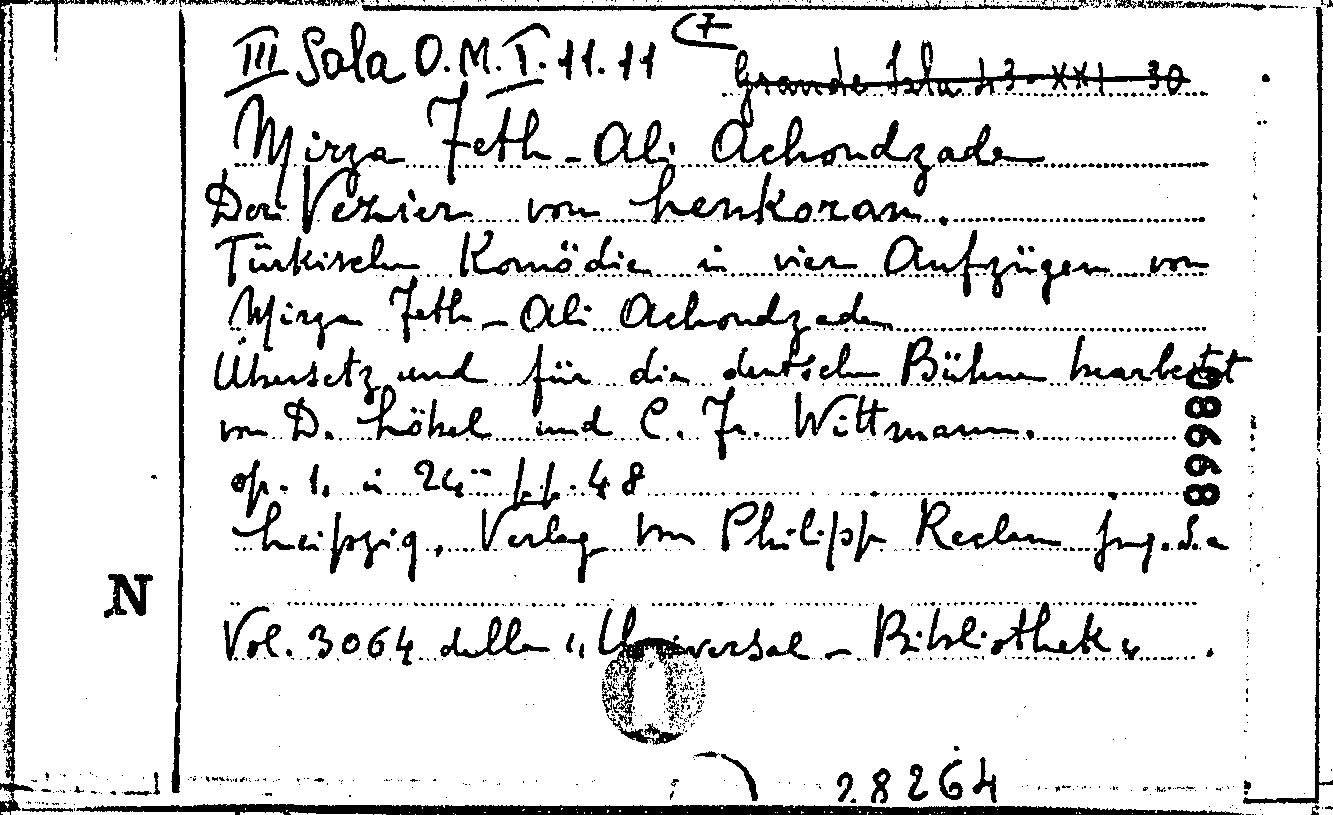 III Sala O.M.I.11.11 (7
Grande Sala 43-XXI-30
Mirza Feth-Ali Achondzade
Der Vezier von Lenkoran.
Türkische Komödie in vier Aufzügen von
Mirza Feth-Ali Achondzade
Übersetz und für die deutsche Bühne bearbeitet
von D. Löbel und C. Fr. Wittmann.
op. 1, in 24° pp. 48
Leipzig, Verlag von Philipp Reclam jun. s.a
N
Vol. 3064 della "Universal-Bibliothek".
086698
28264